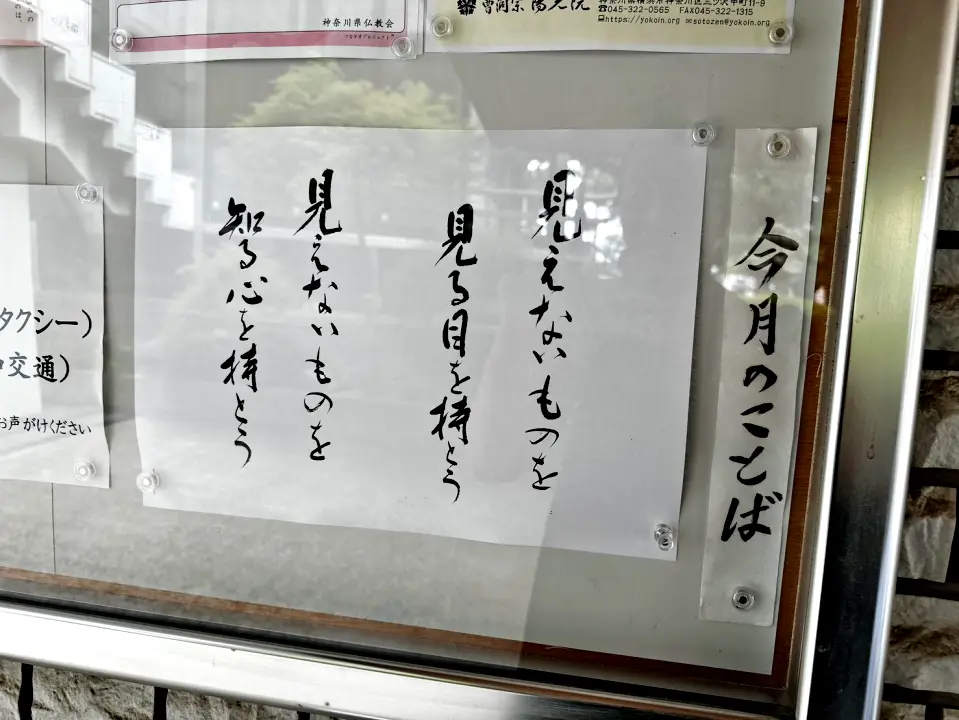 神奈川県仏教会
曹洞宗 陽光院
神奈川県横浜市神奈川区三ツ沢中町11-9
☎045-322-0565 FAX045-322-1315
https://yokoin.org ✉sotozen@yokoin.org
今月のことば
見えないものを
見る目を持とう
見えないものを
知る心を持とう
タクシー）
交通）
お声がけください